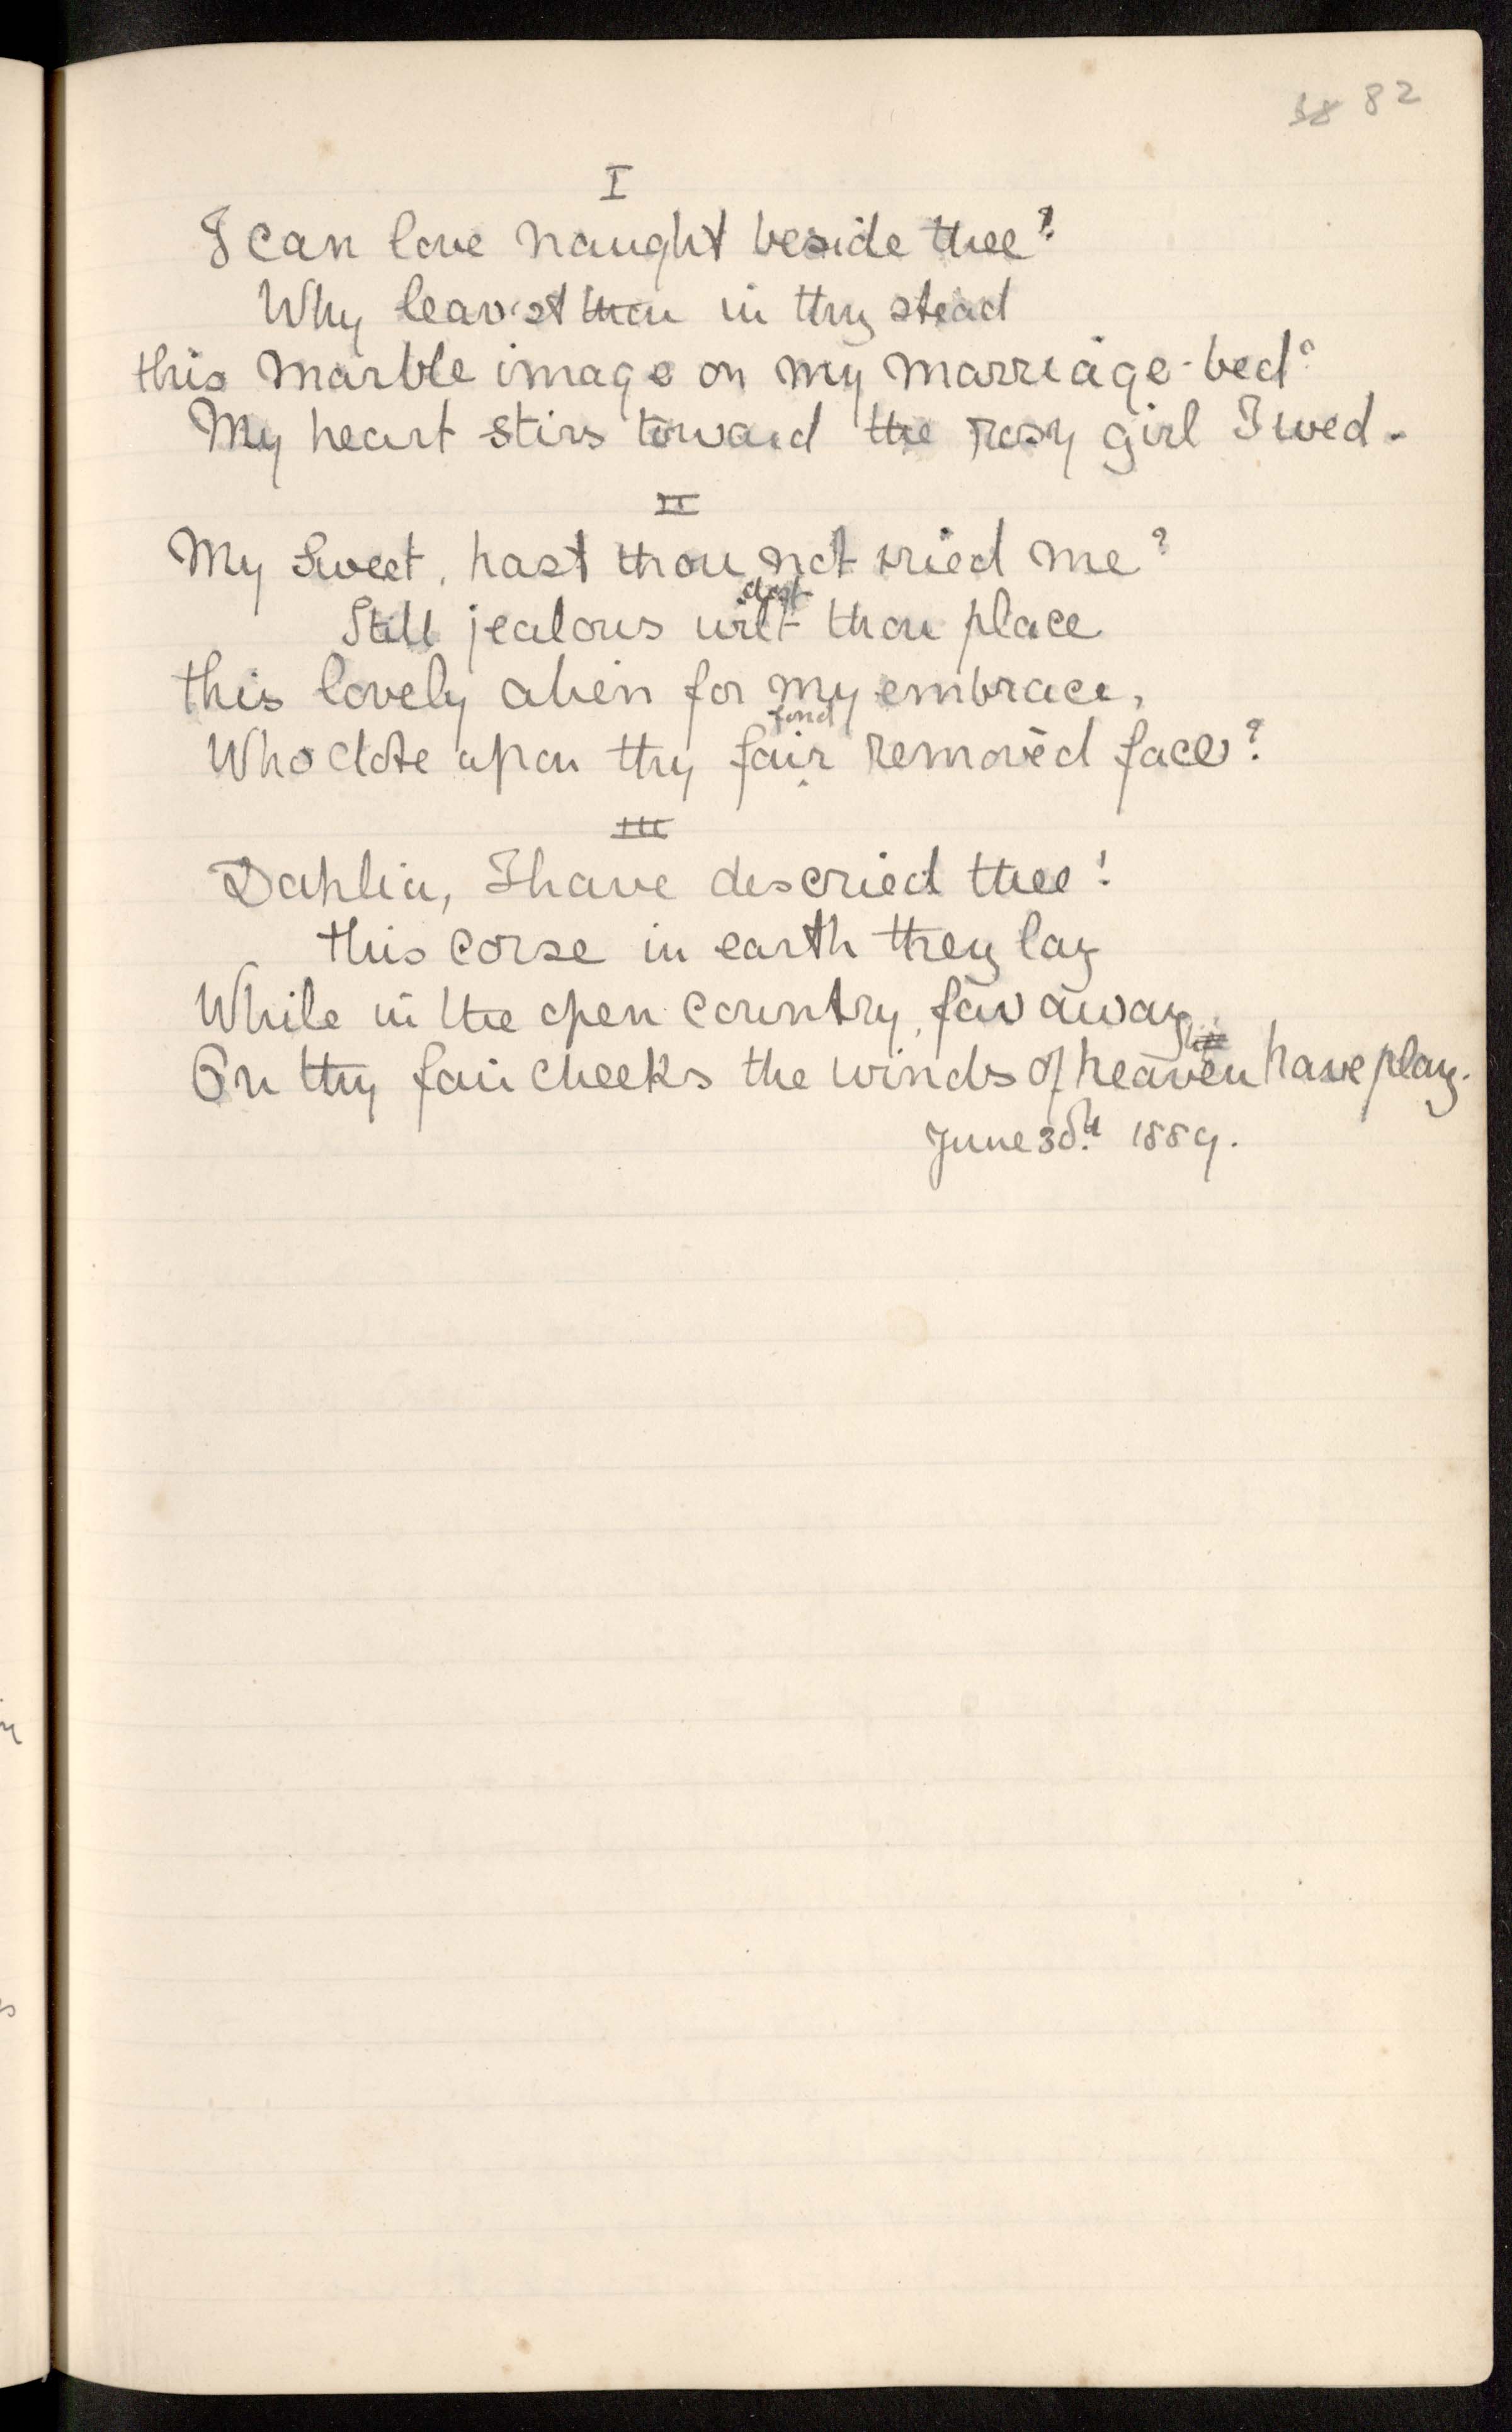 82
I
I can love naught beside thee?
Why leav'st thou in thy stead
this marble image on my marriage-bed?
My heart stirs toward the rosy girl I wed.
II
My Sweet, hast thou not tried me?
dost
Still jealous wilt thou place
this lovely alien for my embrace,
fond
Who dote upon thy fair removèd face?
III
Dahlia, I have descried thee!
this corse in earth they lay
While in the open country, far away,
On thy fair cheeks the winds of heaven have play.
June 30th 1889.